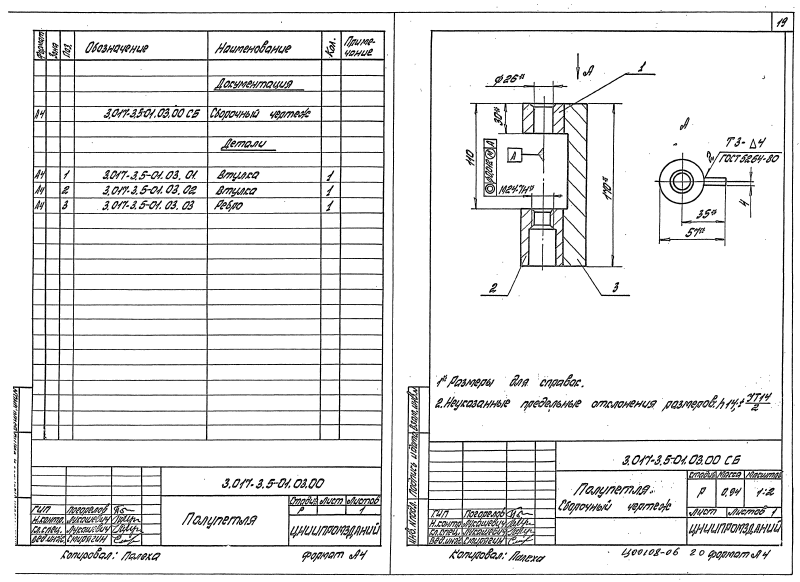 Формат Зона Поз. Обозначение Наименование Кол. Примечание
Документация
А4 3.017-3.5-01.03.00 СБ Сборочный чертеж
Детали
А4 1 3.017-3.5-01.03.01 Втулка 1
А4 2 3.017-3.5-01.03.02 Втулка 1
А4 3 3.017-3.5-01.03.03 Ребро 1
3.017-3.5-01.03.00
Полупетля
Стадия Лист Листов
Р 1
ЦНИИПРОМЗДАНИЙ
ГИП Погорелов
Н.контр. Лукашевич
Гл.спец. Лукашевич
Вед.инж. Смирягин
Копировал: Палеха формат А4
19
⌀26* А 1
30*
110
А
170*
2 3
А
Т3-△4
ГОСТ 5264-80
35*
57*
4
1* Размеры для справок.
2. Неуказанные предельные отклонения размеров: h14; ± IT14/2
3.017-3.5-01.03.00 СБ
Полупетля
Сборочный чертеж
Стадия Масса Масштаб
Р 0,94 1:2
Лист Листов 1
ЦНИИПРОМЗДАНИЙ
ГИП Погорелов
Н.контр. Лукашевич
Гл.спец. Лукашевич
Вед.инж. Смирягин
Инв.№подл. Подпись и дата Взам.инв.№
Копировал: Палеха Ц00108-06 20 формат А4